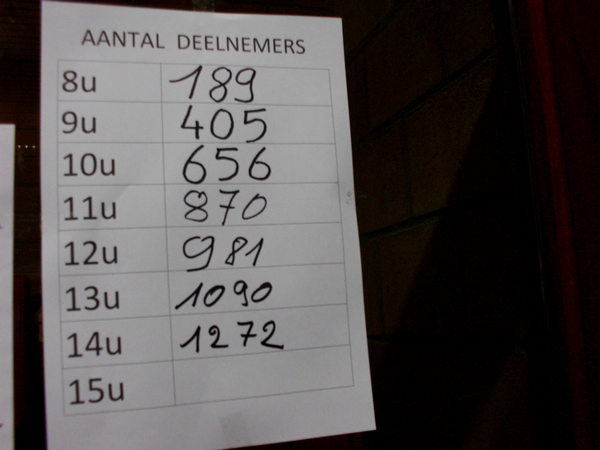 AANTAL DEELNEMERS
8u 189
9u 405
10u 656
11u 870
12u 981
13u 1090
14u 1272
15u